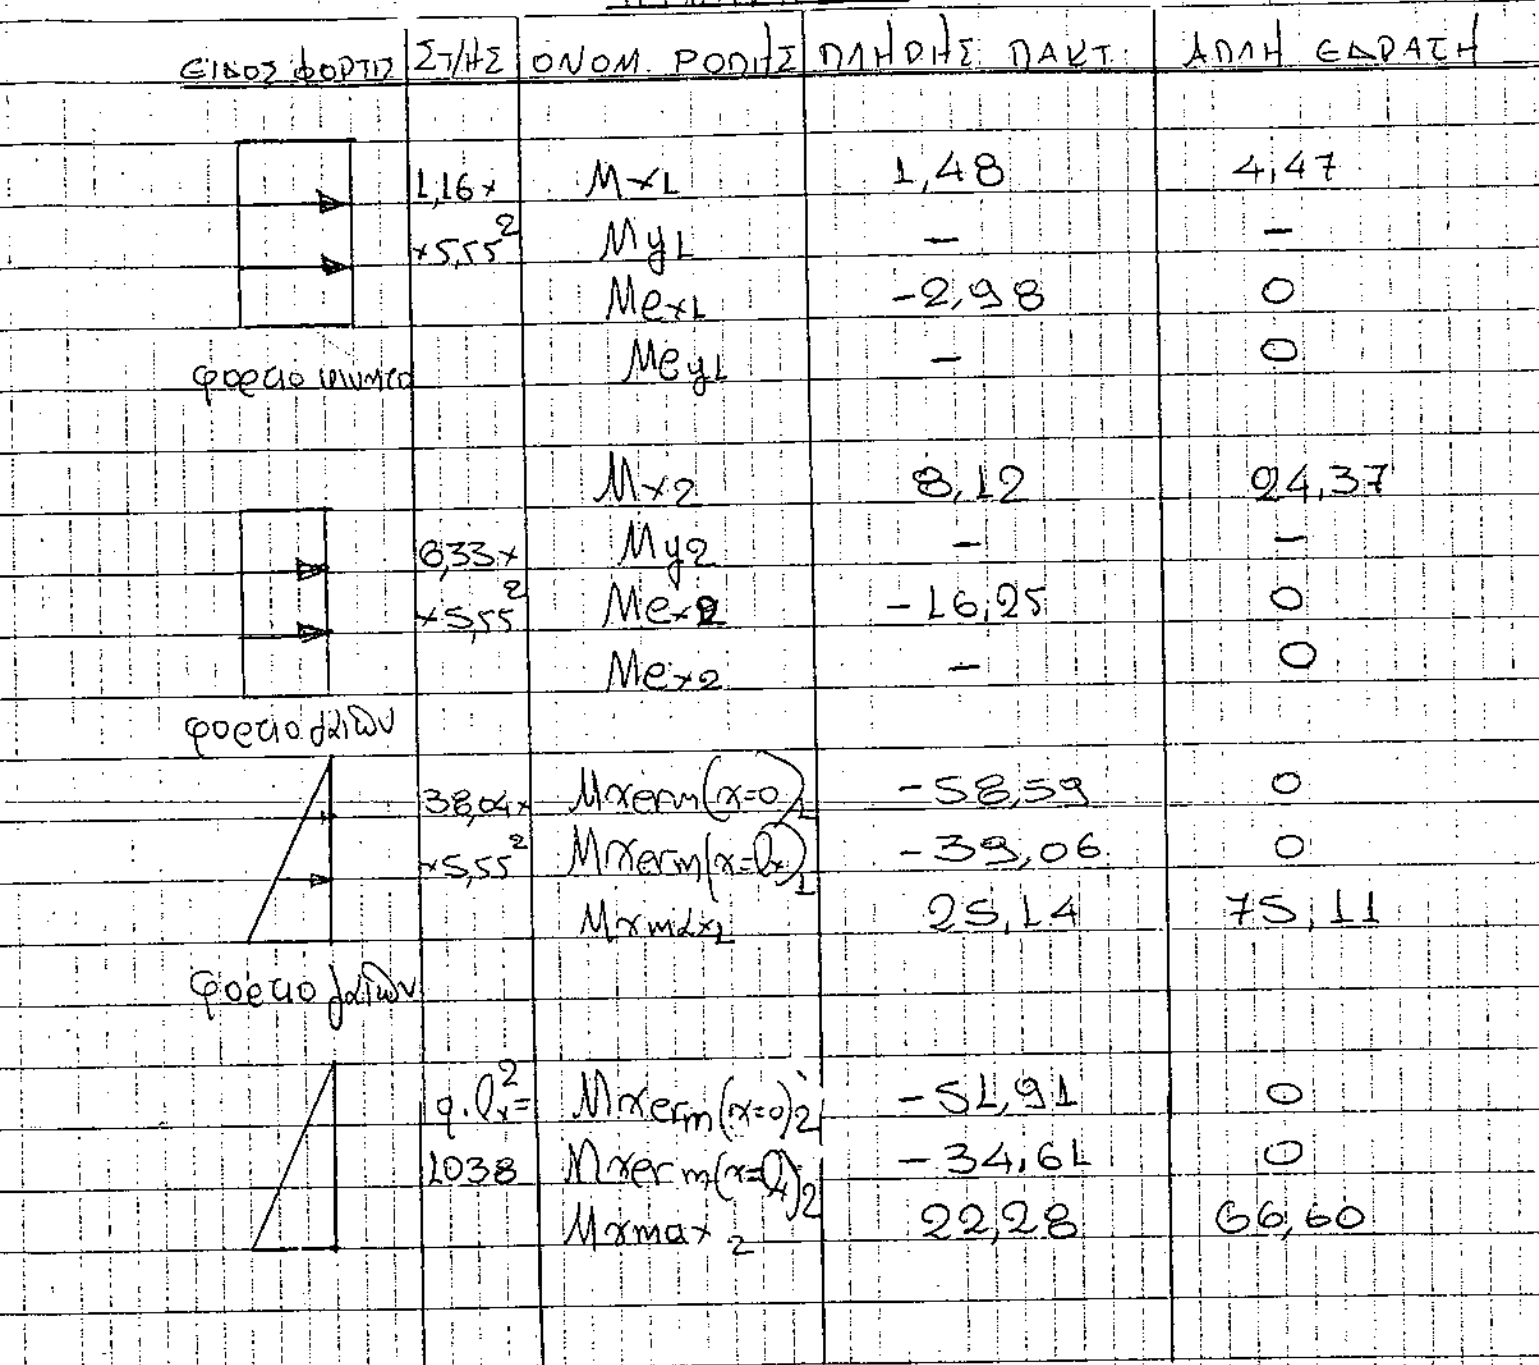 ΕΙΔΟΣ ΦΟΡΤΙΣ ΣΤ/ΗΣ ΟΝΟΜ. ΡΟΠΗΣ ΠΛΗΡΗΣ ΠΑΚΤ. ΑΠΛΗ ΕΔΡΑΣΗ
1,16× Mx1 1,48 4,47
×5,55² My1 – –
Mex1 -2,98 0
Mey1 – 0
φορτιο
Mx2 8,12 24,37
6,33× My2 – –
×5,55² Mex2 -16,25 0
Mex2 – 0
φορτιο γαιών
38,04× Mxerm(x=0)1 -58,59 0
×5,55² Mxerm(x=lx)1 -39,06 0
Mxmax1 25,14 75,11
φορτιο γαιών
q.lx²= Mxerm(x=0)2 -51,91 0
1038 Mxerm(x=lx)2 -34,61 0
Mxmax2 22,28 66,60